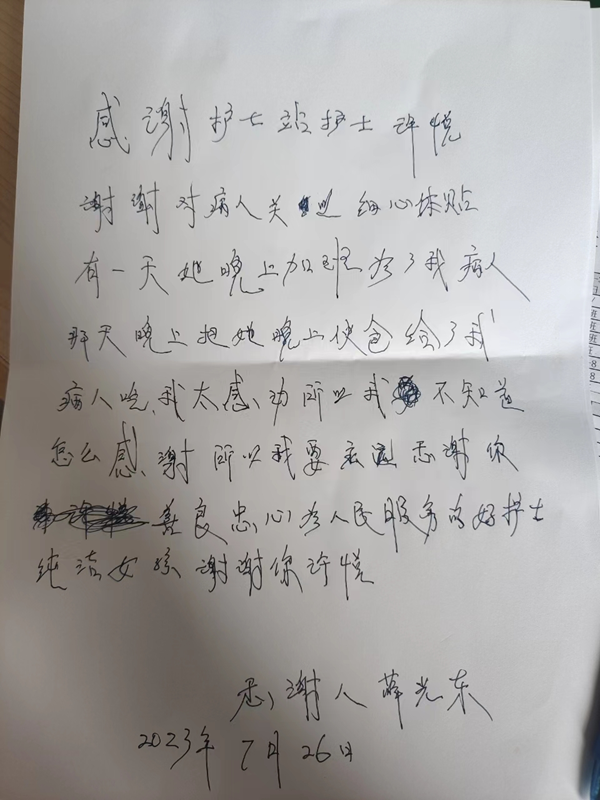 感谢护士站护士许悦
谢谢对病人关 细心体贴
有一天她晚上加班为了我病人
那天晚上把她晚上饭给了我
病人吃、我太感动所以我不知道
怎么感谢所以我要表 感谢你
善良忠心为人民服务的好护士
纯洁女孩谢谢你许悦
感谢人薛光东
2023年7月26日